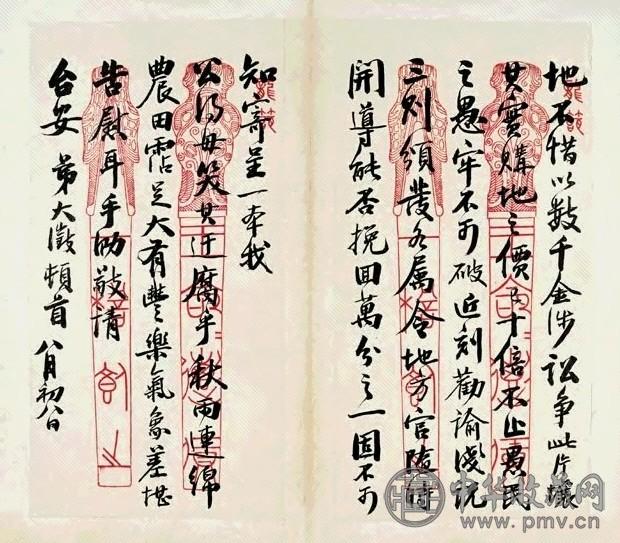 地不惜以數千金涉訟爭此片壤
其實購地之價已十倍不止愚民
之愚牢不可破近刻勸諭淺說
三則頒發各屬令地方官隨時
開導能否挽回萬分之一固不可
知寄呈一本我
公得毋笑其迂腐乎秋雨連綿
農田霑足大有豐樂氣象差堪
告慰耳手泐敬請
台安 弟大澂頓首 八月初八日
中华收藏网
www.pmv.cn